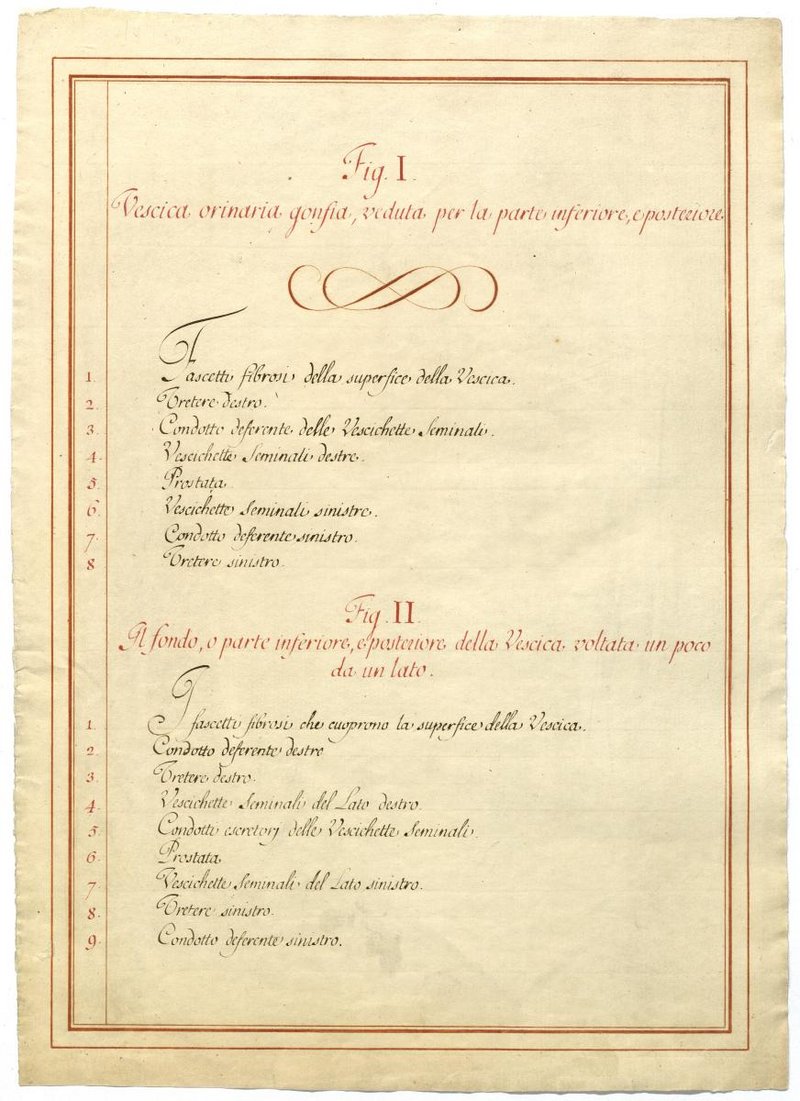 Fig. I.
Vescica orinaria gonfia, veduta per la parte inferiore, e posteriore
1. Fascetti fibrosi della superfice della Vescica.
2. Uretere destro.
3. Condotto deferente delle Vescichette Seminali.
4. Vescichette Seminali destre.
5. Prostata
6. Vescichette Seminali sinistre.
7. Condotto deferente sinistro.
8 Uretere sinistro.
Fig. II.
Il fondo, o parte inferiore, e posteriore della Vescica voltata un poco
da un lato.
1. I fascetti fibrosi che cuoprono la superfice della Vescica.
2. Condotto deferente destre
3. Uretere destro.
4. Vescichette Seminali del Lato destro.
5. Condotti escretorj delle Vescichette Seminali.
6. Prostata
7. Vescichette Seminali del Lato sinistro.
8. Uretere sinistro.
9. Condotto deferente sinistro.